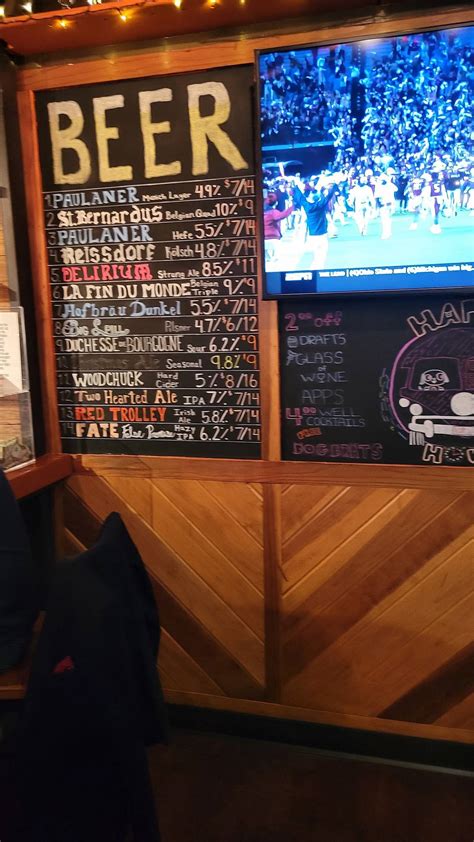 BEER
1 PAULANER Munich Lager 4.9% $7/14
2 St. Bernardus Belgian Quad 10% $9
3 PAULANER Hefe 5.5% $7/14
4 Reissdorf Kölsch 4.8% $7/14
5 DELIRIUM Strong Ale 8.5% $11
6 LA FIN DU MONDE Belgian Triple 9% $9
7 Hofbräu Dunkel 5.5% $7/14
8 Pilsner 4.7% $6/12
9 DUCHESSE DE BOURGOGNE Sour 6.2% $9
Seasonal 9.8% $9
11 WOODCHUCK Hard Cider 5% $8/16
12 Two Hearted Ale IPA 7% $7/14
13 RED TROLLEY Irish Ale 5.8% $7/14
14 FATE Hazy IPA 6.2% $7/14
ESPN
2.00 off
DRAFTS
GLASS
of
WINE
APPS
4.00 WELL
COCKTAILS
HA
HO